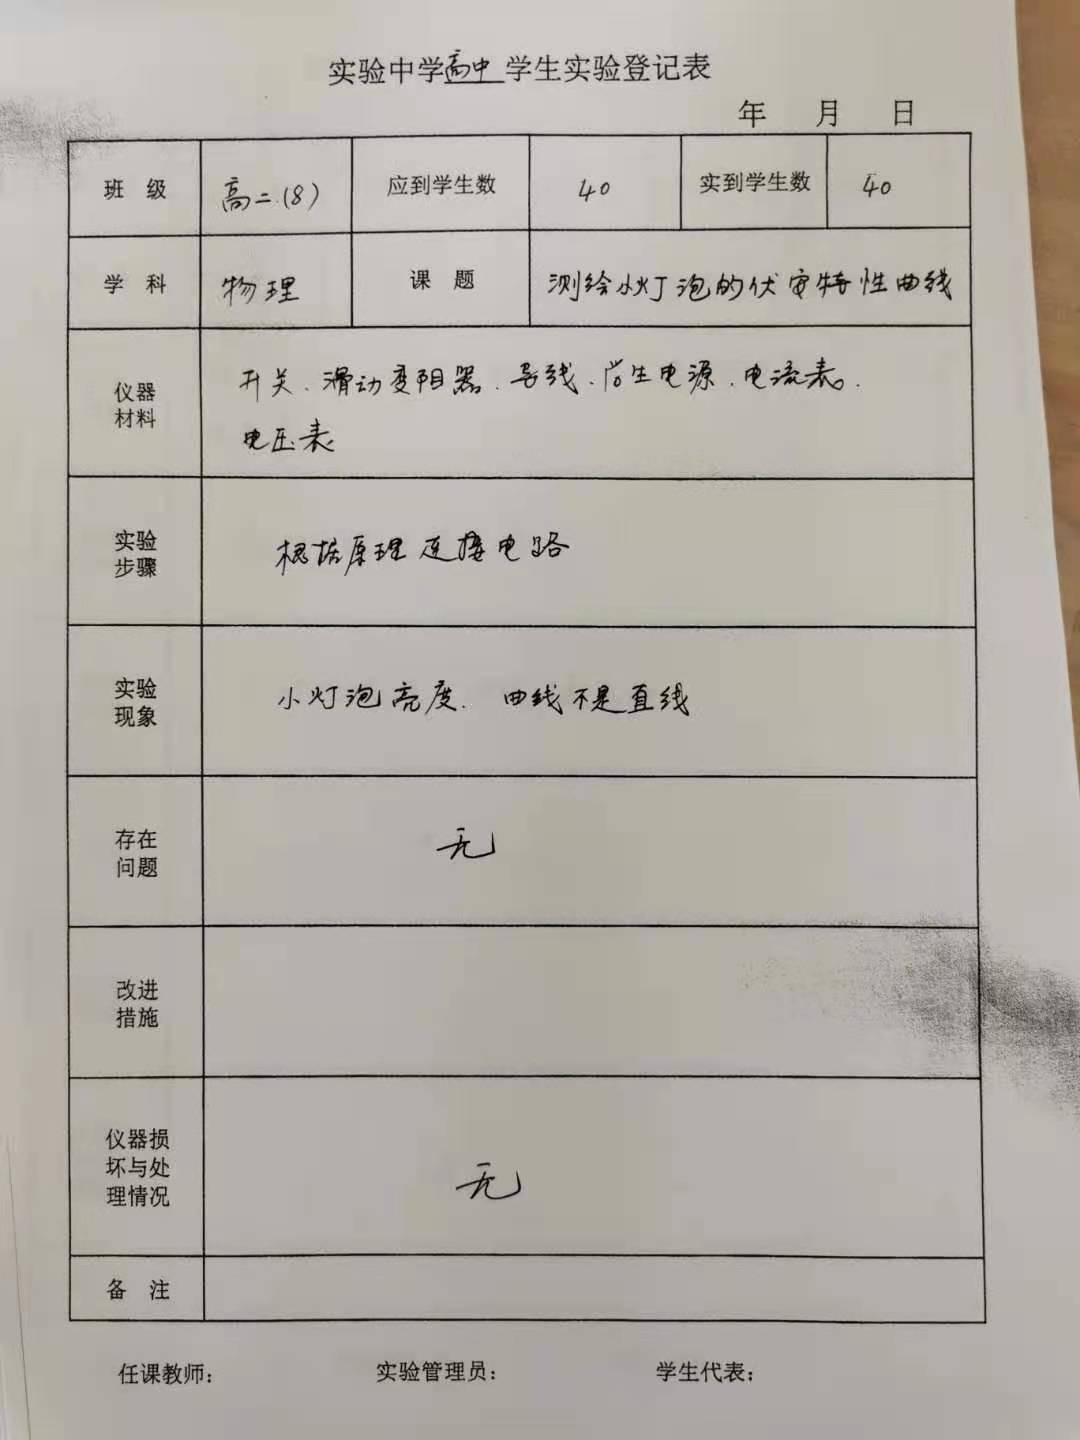 实验中学高中学生实验登记表
年 月 日
班 级 高二.(8) 应到学生数 40 实到学生数 40
学 科 物理 课 题 测绘小灯泡的伏安特性曲线
仪器
材料
开关、滑动变阻器、导线、学生电源、电流表。
电压表
实验
步骤
根据原理连接电路
实验
现象
小灯泡亮度. 曲线不是直线
存在
问题
无
改进
措施
仪器损
坏与处
理情况
无
备 注
任课教师: 实验管理员: 学生代表: